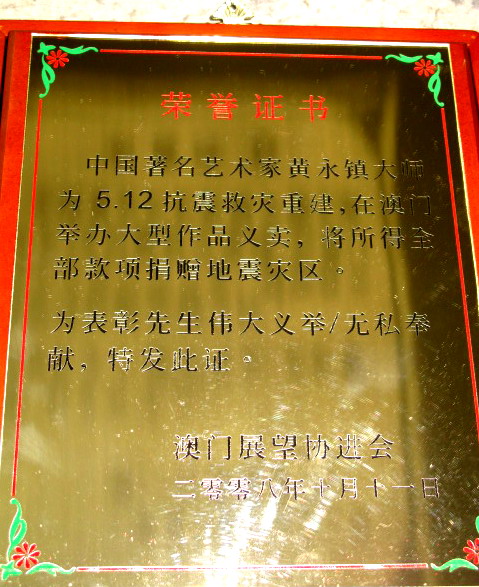 荣誉证书
中国著名艺术家黄永镇大师
为 5.12 抗震救灾重建,在澳门
举办大型作品义卖，将所得全
部款项捐赠地震灾区。
为表彰先生伟大义举/无私奉
献，特发此证。
澳门展望协进会
二零零八年十月十一日